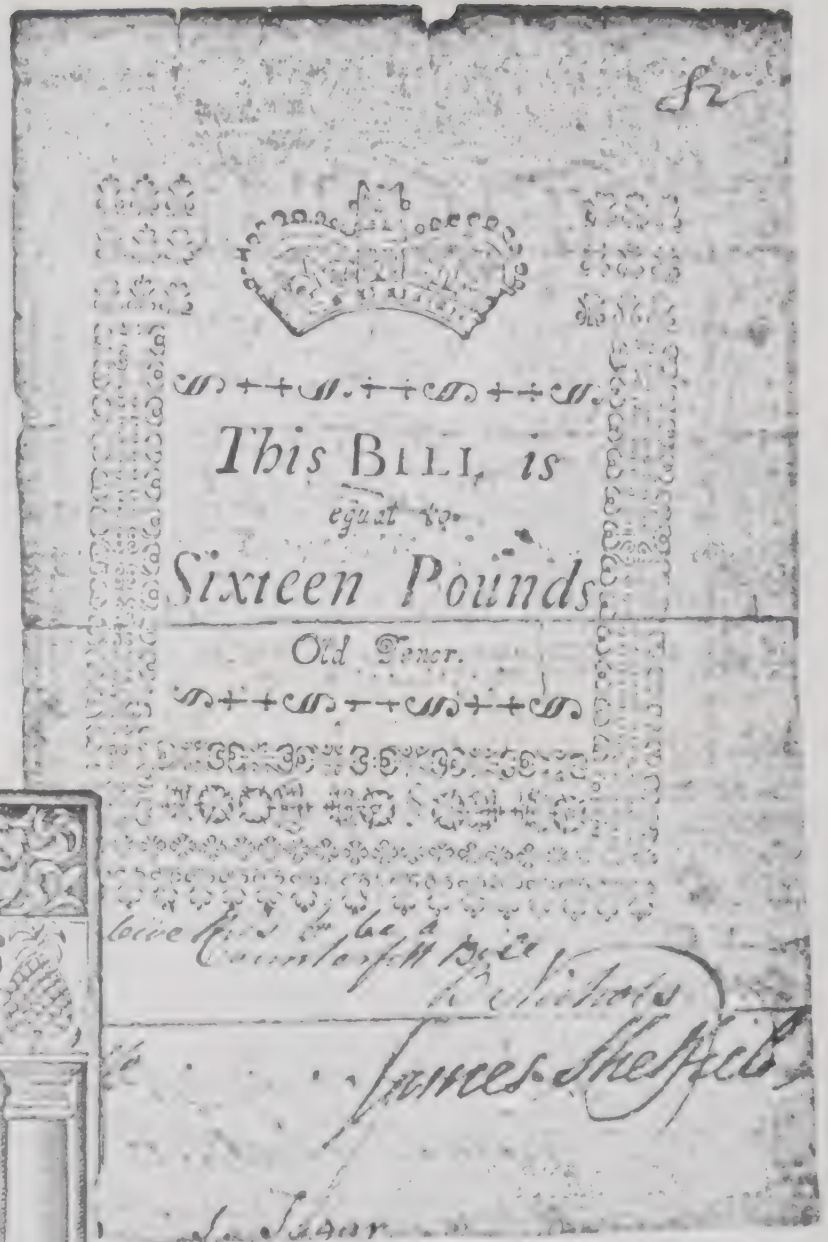 This BILL is
equal to
Sixteen Pounds
Old Tenor.
leive this to be a
Counterfitt Bill
Nichols
James Sheffield